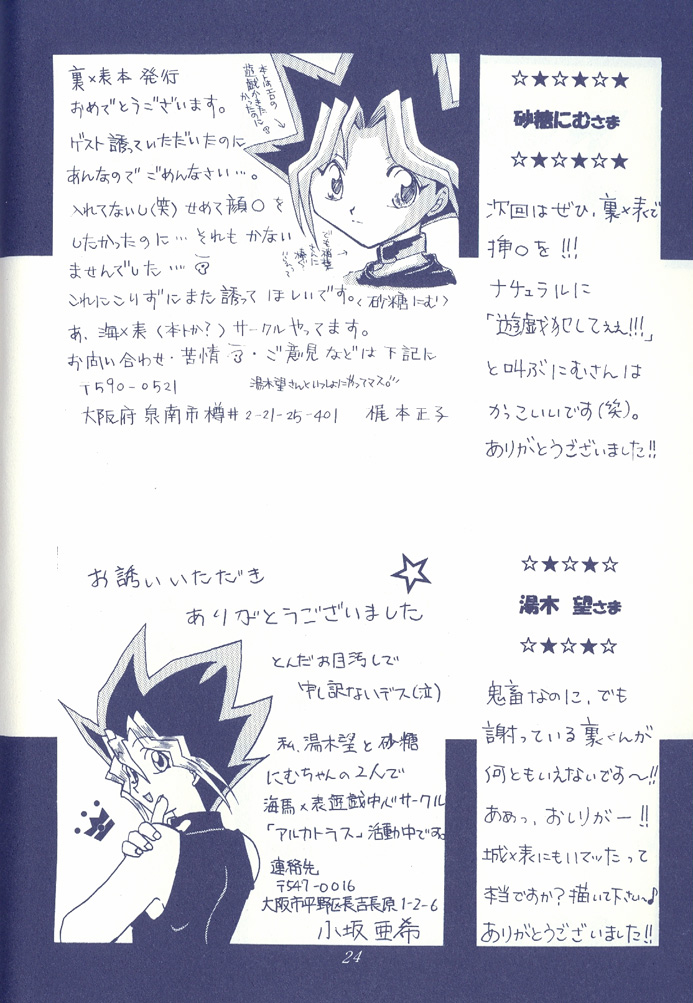 裏×表本 発行
おめでとうございます。
ゲスト誘っていただいたのに
あんなので ごめんなさい…。
入れてないし(笑) せめて顔○を
したかったのに… それも かない
ませんでした…
これにこりずにまた誘って ほしいです。(砂糖にむ)
あ、海×表(本トか?)サークルやってます。
お問い合わせ・苦情・ご意見などは 下記に
〒590-0521
湯木望さんといっしょにやってマス。
大阪府泉南市樽井2-21-25-401 梶本正子
☆★☆★☆★
砂糖にむさま
☆★☆★☆★
次回はぜひ、裏×表で
挿○を!!!
ナチュラルに
「遊戯犯してぇぇ!!!」
と叫ぶにむさんは
かっこいいです(笑)。
ありがとうございました!!
お誘いいただき
ありがとうございました
とんだお目汚しで
申し訳ないデス(泣)
私、湯木望と砂糖
にむちゃんの2人で
海馬×表遊戯中心サークル
「アルカトラス」活動中です。
連絡先
〒547-0016
大阪市平野区長吉長原1-2-6
小坂亜希
☆★☆★☆
湯木 望さま
☆★☆★☆
鬼畜なのに、でも
謝っている裏くんが
何ともいえないです〜!!
ああっ、おしりがー!!
城×表にもいてッたって
本当ですか?描いて下さい〜♪
ありがとうございました!!
24